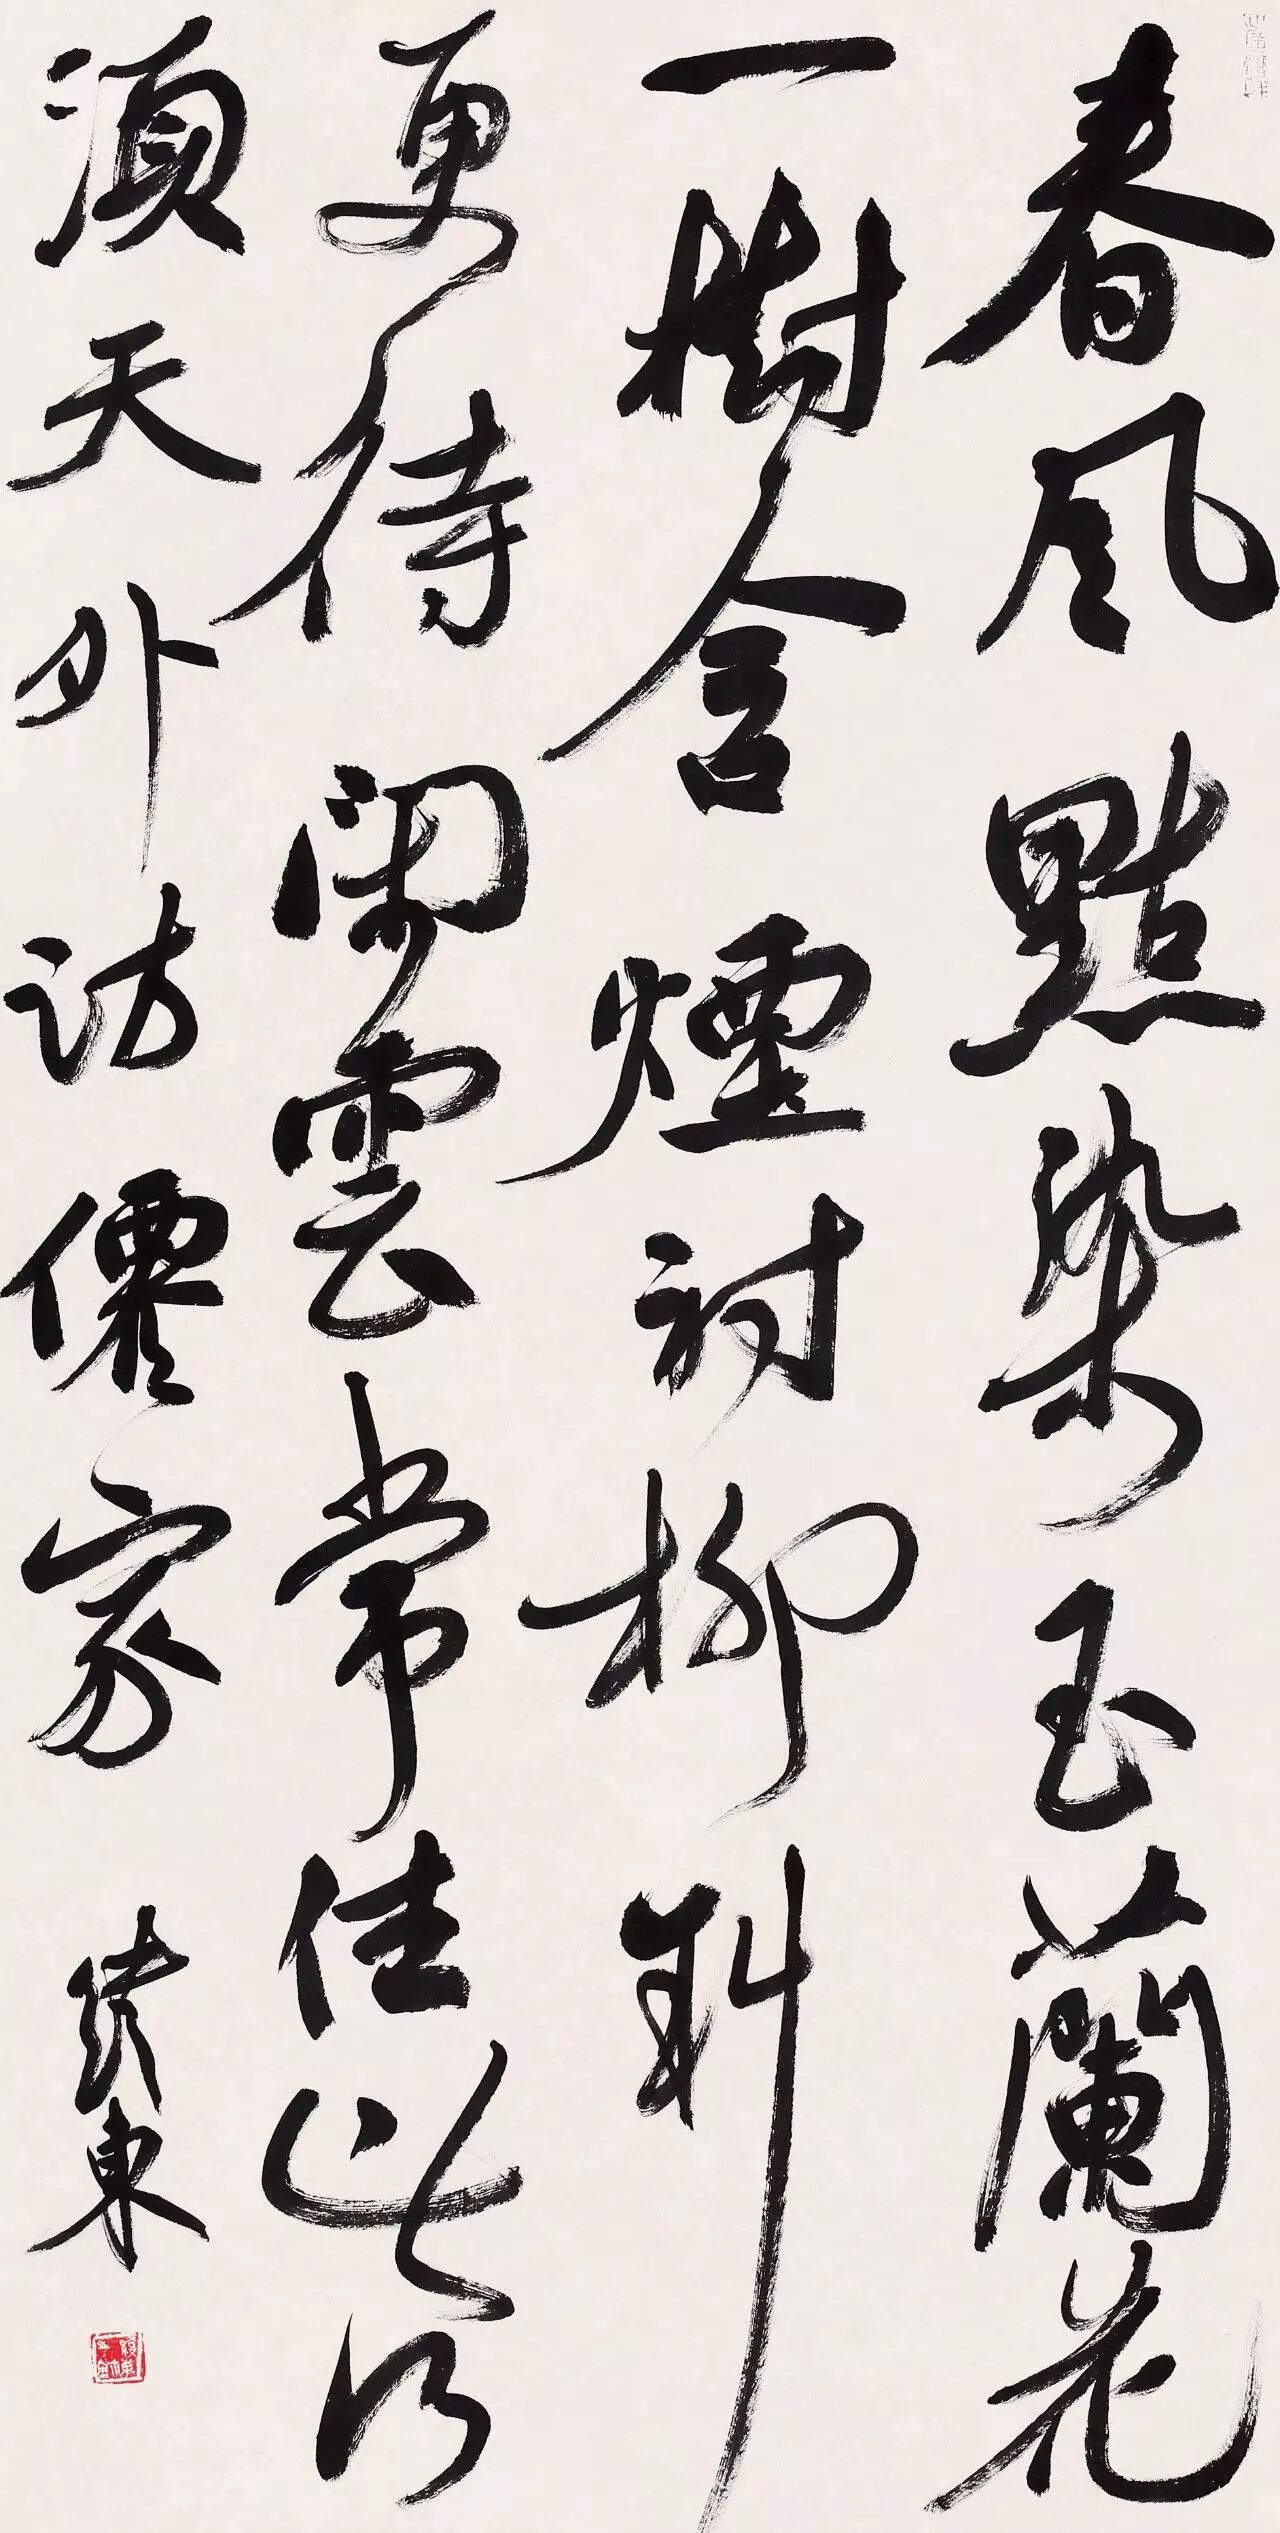 春風點染玉蘭花
一樹含煙衬柳斜
更待闲雲常住此不
須天外訪僊家
東